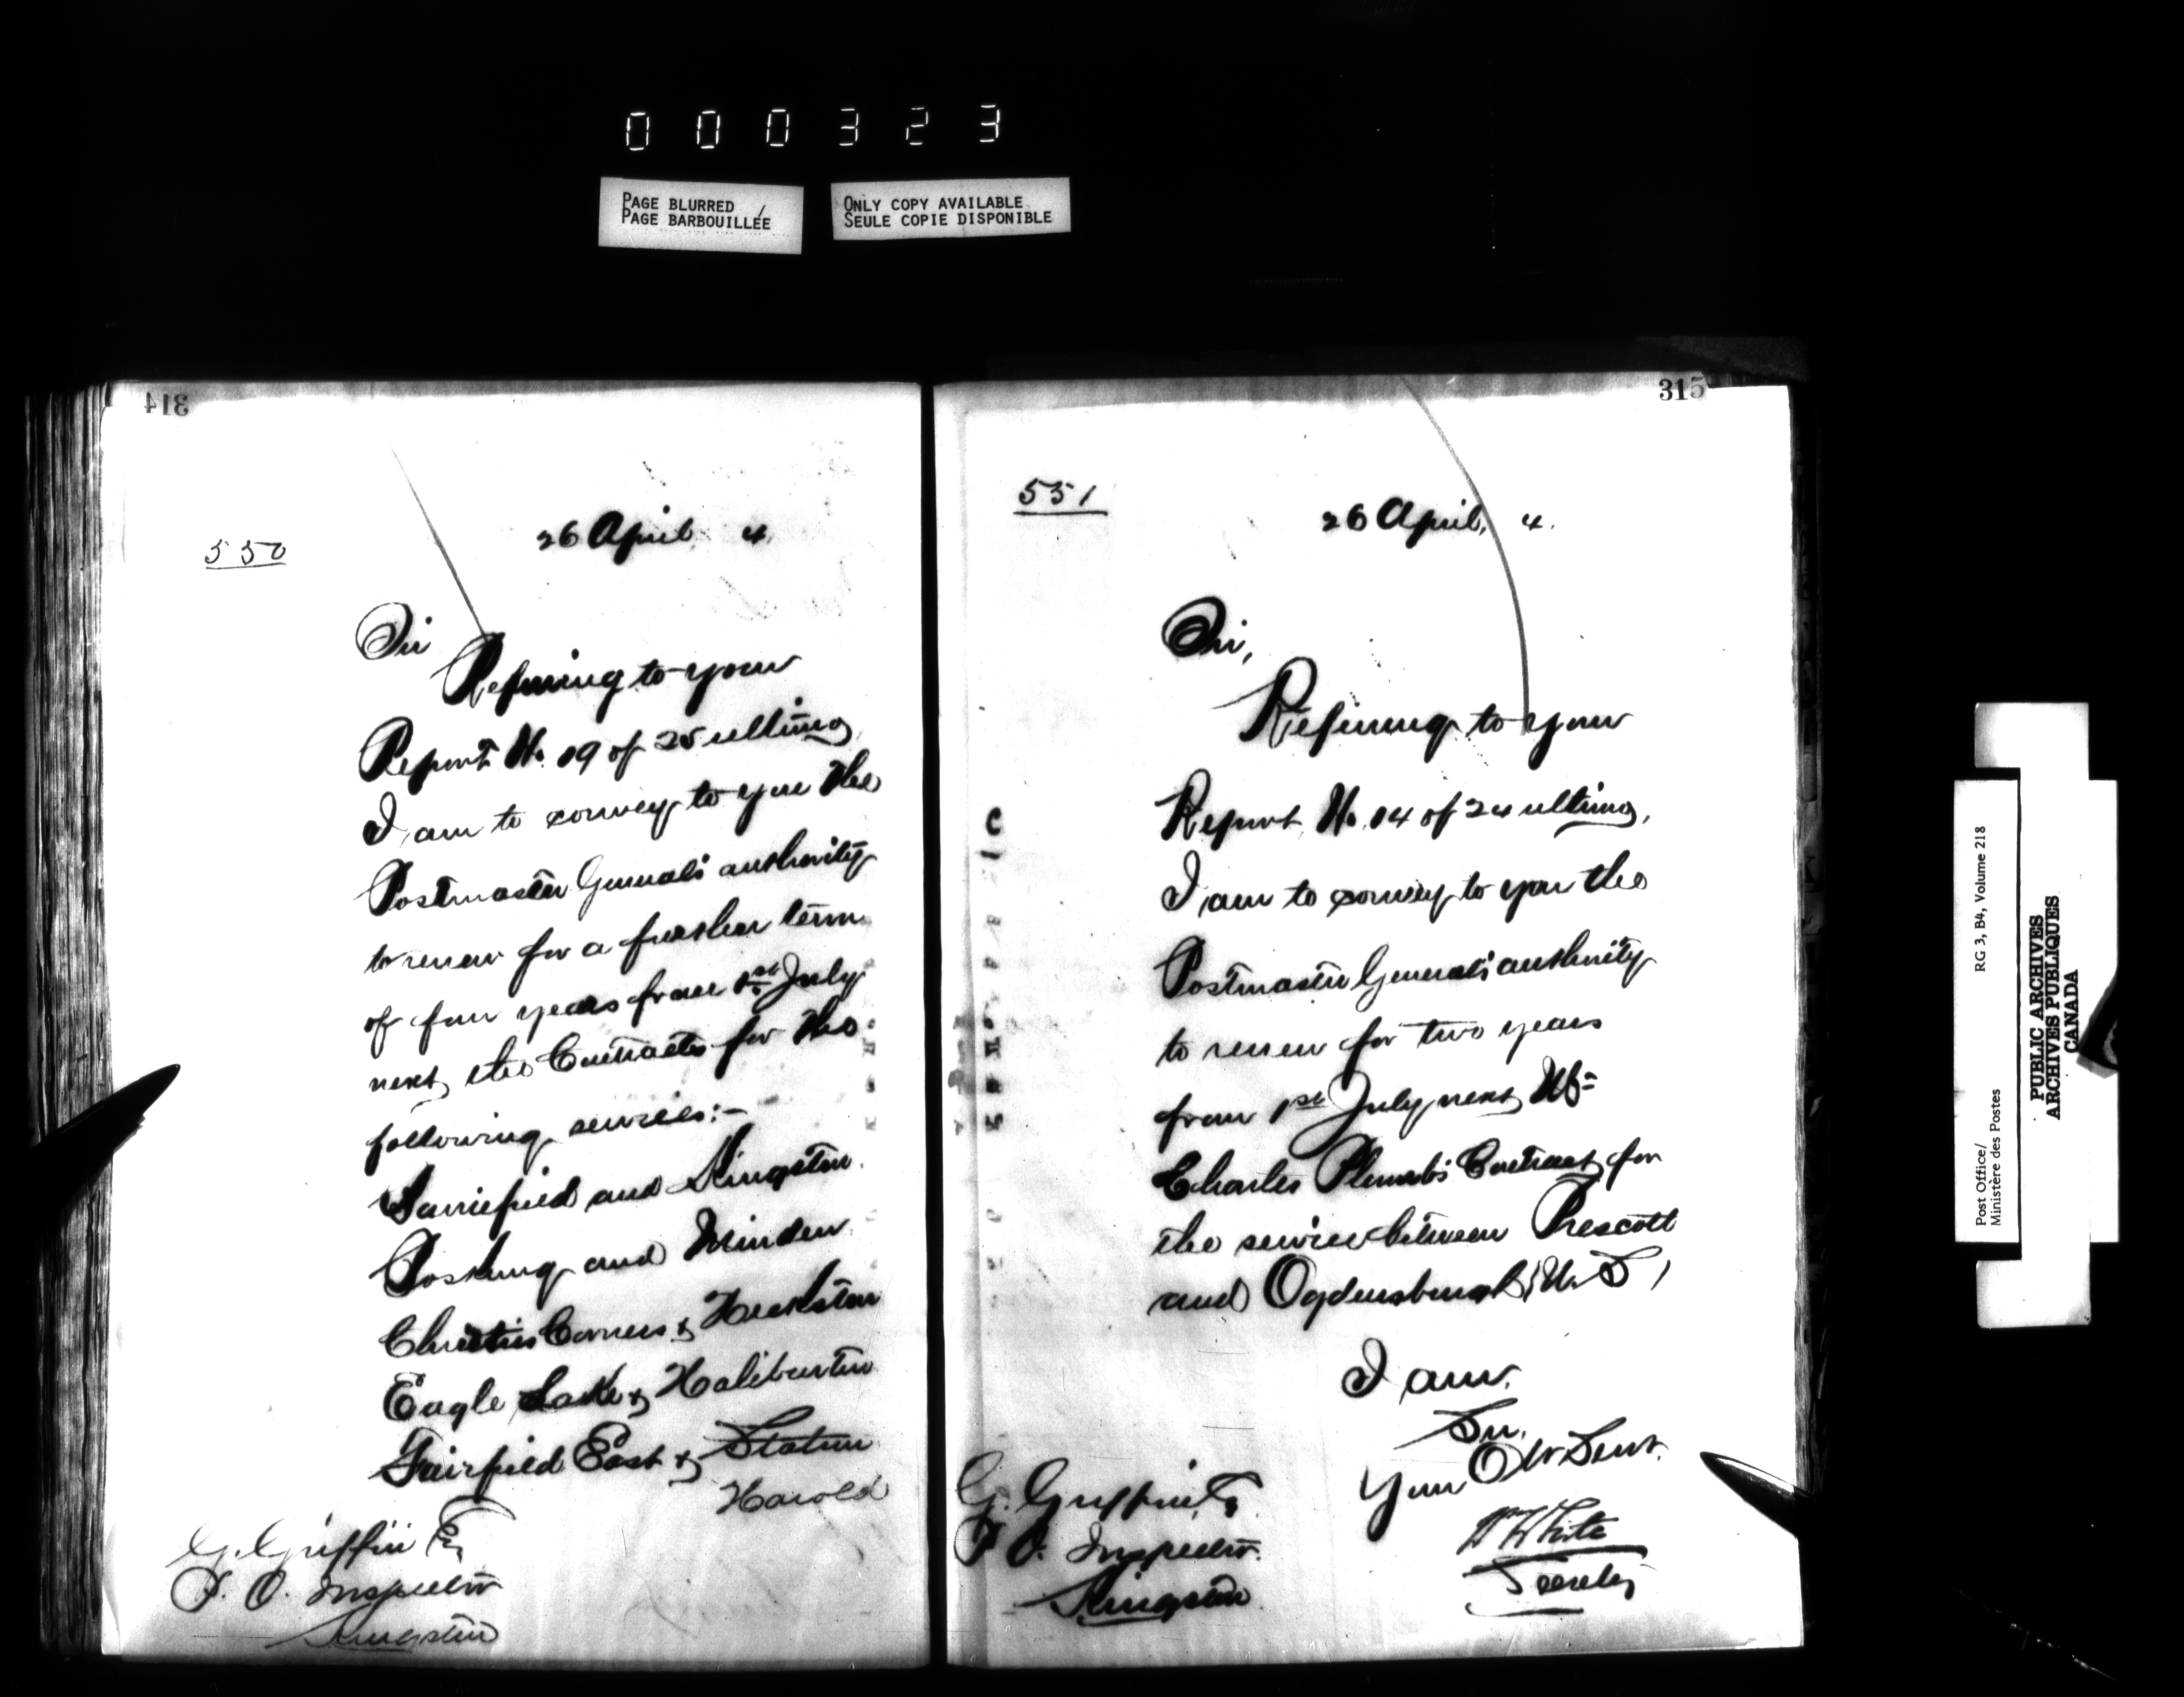 000323
PAGE BLURRED
PAGE BARBOUILLÉE
ONLY COPY AVAILABLE
SEULE COPIE DISPONIBLE
314
550
26 April 4
Sir
Referring to your
Report No. 19 of 25 ultimo
I am to convey to you the
Postmaster General's authority
to renew for a further term
of four years from 1st July
next, the Contracts for the
following services:-
Barriefield and Kingston
Boskung and Minden
Christies Corners & Heckston
Eagle Lake & Haliburton
Fairfield East & Station
Harold
G. Griffin Esq
P. O. Inspector
Kingston
315
551
26 April, 4.
Sir,
Referring to your
Report No. 14 of 24 ultimo,
I am to convey to you the
Postmaster General's authority
to renew for two years
from 1st July next Mr
Charles Plumb's Contract for
the service between Prescott
and Ogdensburgh, U. S,
I am.
Sir.
Your Obt Servt.
W White
Secretary
G. Griffin,
P. O. Inspector.
Kingston
Post Office/
Ministère des Postes
RG 3, B4, Volume 218
PUBLIC ARCHIVES
ARCHIVES PUBLIQUES
CANADA